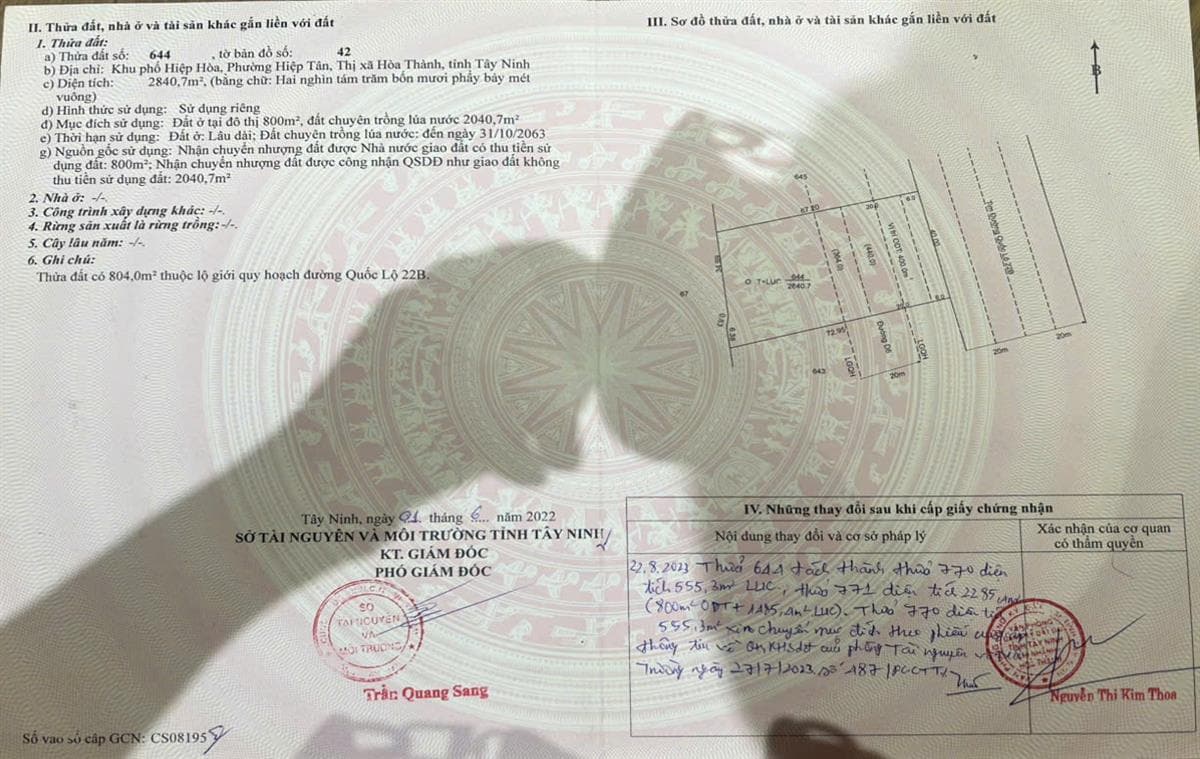 II. Thửa đất, nhà ở và tài sản khác gắn liền với đất
1. Thửa đất:
a) Thửa đất số: 644 , tờ bản đồ số: 42
b) Địa chỉ: Khu phố Hiệp Hòa, Phường Hiệp Tân, Thị xã Hòa Thành, tỉnh Tây Ninh
c) Diện tích: 2840,7m², (bằng chữ: Hai nghìn tám trăm bốn mươi phẩy bảy mét
vuông)
d) Hình thức sử dụng: Sử dụng riêng
đ) Mục đích sử dụng: Đất ở tại đô thị 800m², đất chuyên trồng lúa nước 2040,7m²
e) Thời hạn sử dụng: Đất ở: Lâu dài; Đất chuyên trồng lúa nước: đến ngày 31/10/2063
g) Nguồn gốc sử dụng: Nhận chuyển nhượng đất được Nhà nước giao đất có thu tiền sử
dụng đất: 800m²; Nhận chuyển nhượng đất được công nhận QSDĐ như giao đất không
thu tiền sử dụng đất: 2040,7m²
2. Nhà ở: -/-.
3. Công trình xây dựng khác: -/-.
4. Rừng sản xuất là rừng trồng: -/-.
5. Cây lâu năm: -/-.
6. Ghi chú:
Thửa đất có 804,0m² thuộc lộ giới quy hoạch đường Quốc Lộ 22B.
Tây Ninh, ngày 01 tháng 6... năm 2022
SỞ TÀI NGUYÊN VÀ MÔI TRƯỜNG TỈNH TÂY NINH
KT. GIÁM ĐỐC
PHÓ GIÁM ĐỐC
SỞ
TÀI NGUYÊN
VÀ
MÔI TRƯỜNG
Trần Quang Sang
Số vào sổ cấp GCN: CS08195
III. Sơ đồ thửa đất, nhà ở và tài sản khác gắn liền với đất
B
645
67.20
20.0
6.0
(364.0)
(440.0)
Vị trí ODT: 400.0m²
42.00
Tim Đường Quốc Lộ 22B
67
T+LUC
644
2840.7
0.63
6.38
72.95
20.0
6.0
643
LGQH
Đường Dđ
LGQH
20m
20m
20m
IV. Những thay đổi sau khi cấp giấy chứng nhận
Nội dung thay đổi và cơ sở pháp lý
Xác nhận của cơ quan
có thẩm quyền
22.8.2023 Thửa 644 tách thành thửa 770 diện
tích 555,3m² LUC, thửa 771 diện tích 2285,4m²
(800m² ODT + 1485,4m² LUC). Thửa 770 diện tích
555,3m² xin chuyển mục đích theo phiếu cung cấp
thông tin về QH,KHSDĐ của phòng Tài nguyên và Môi
Trường ngày 27/7/2023 số 487/PCCTT.
Nguyễn Thị Kim Thoa